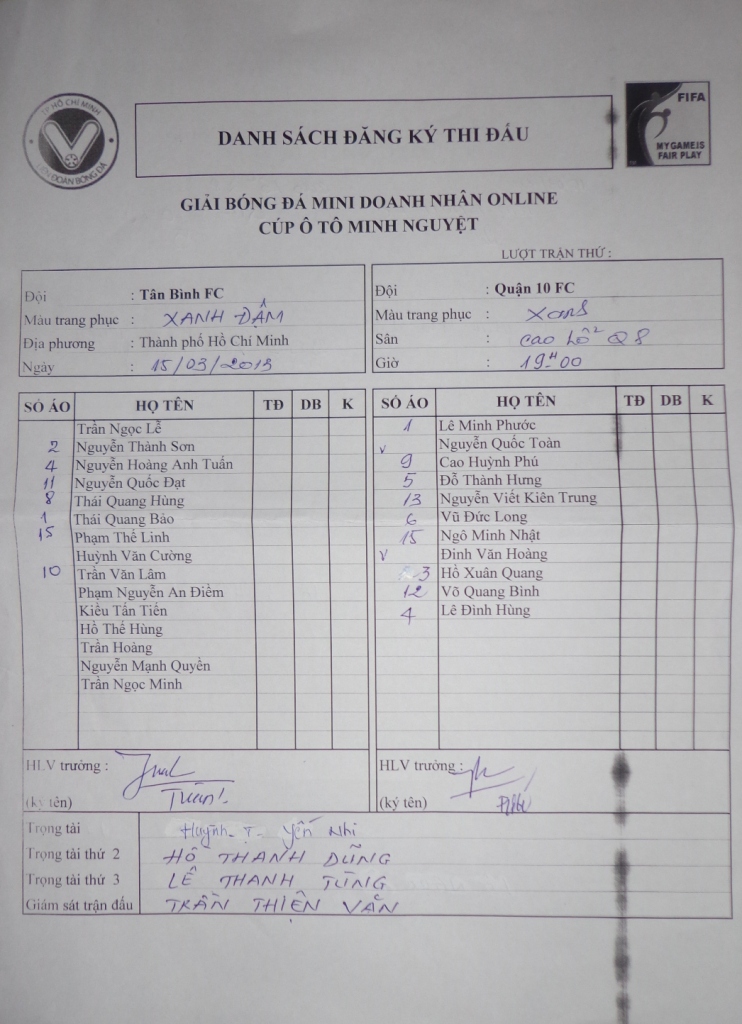 TP HỒ CHÍ MINH
LIÊN ĐOÀN BÓNG ĐÁ
FIFA
MY GAME IS
FAIR PLAY
DANH SÁCH ĐĂNG KÝ THI ĐẤU
GIẢI BÓNG ĐÁ MINI DOANH NHÂN ONLINE
CÚP Ô TÔ MINH NGUYỆT
LƯỢT TRẬN THỨ :
Đội : Tân Bình FC
Màu trang phục : XANH ĐẬM
Địa phương : Thành phố Hồ Chí Minh
Ngày : 15/03/2013
Đội : Quận 10 FC
Màu trang phục :
Sân : Q8
Giờ : 19H00
SỐ ÁO HỌ TÊN TĐ DB K
Trần Ngọc Lễ
2 Nguyễn Thành Sơn
4 Nguyễn Hoàng Anh Tuấn
11 Nguyễn Quốc Đạt
8 Thái Quang Hùng
1 Thái Quang Bảo
15 Phạm Thế Linh
Huỳnh Văn Cường
10 Trần Văn Lâm
Phạm Nguyễn An Điềm
Kiều Tấn Tiến
Hồ Thế Hùng
Trần Hoàng
Nguyễn Mạnh Quyền
Trần Ngọc Minh
SỐ ÁO HỌ TÊN TĐ DB K
1 Lê Minh Phước
v Nguyễn Quốc Toàn
9 Cao Huỳnh Phú
5 Đỗ Thành Hưng
13 Nguyễn Viết Kiên Trung
6 Vũ Đức Long
15 Ngô Minh Nhật
v Đinh Văn Hoàng
3 Hồ Xuân Quang
12 Võ Quang Bình
4 Lê Đình Hùng
HLV trưởng :
(ký tên)
HLV trưởng :
(ký tên)
Trọng tài Huỳnh T. Yến Nhi
Trọng tài thứ 2 HỒ THANH DŨNG
Trọng tài thứ 3 LÊ THANH TÙNG
Giám sát trận đấu TRẦN THIỆN VĂN